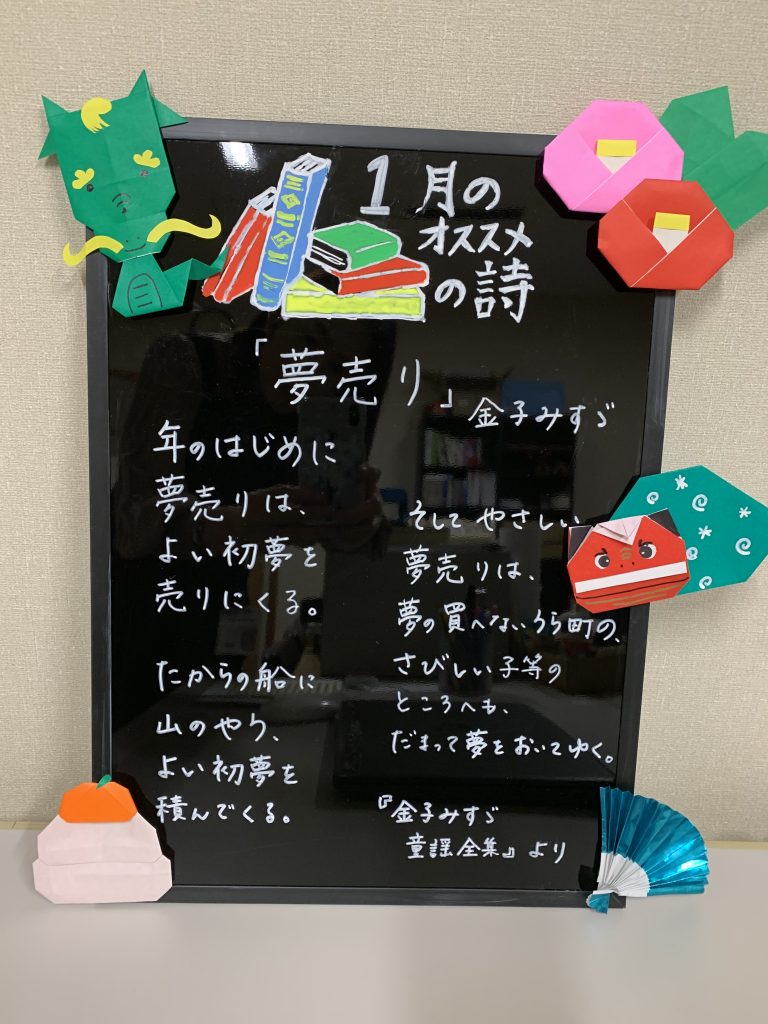 1月の
オススメ
の詩
「夢売り」
金子みすゞ
年のはじめに
夢売りは、
よい初夢を
売りにくる。
たからの船に
山のやう、
よい初夢を
積んでくる。
そしてやさしい
夢売りは、
夢の買へないうら町の、
さびしい子等の
ところへも、
だまって夢をおいてゆく。
『金子みすゞ
童謡全集』より